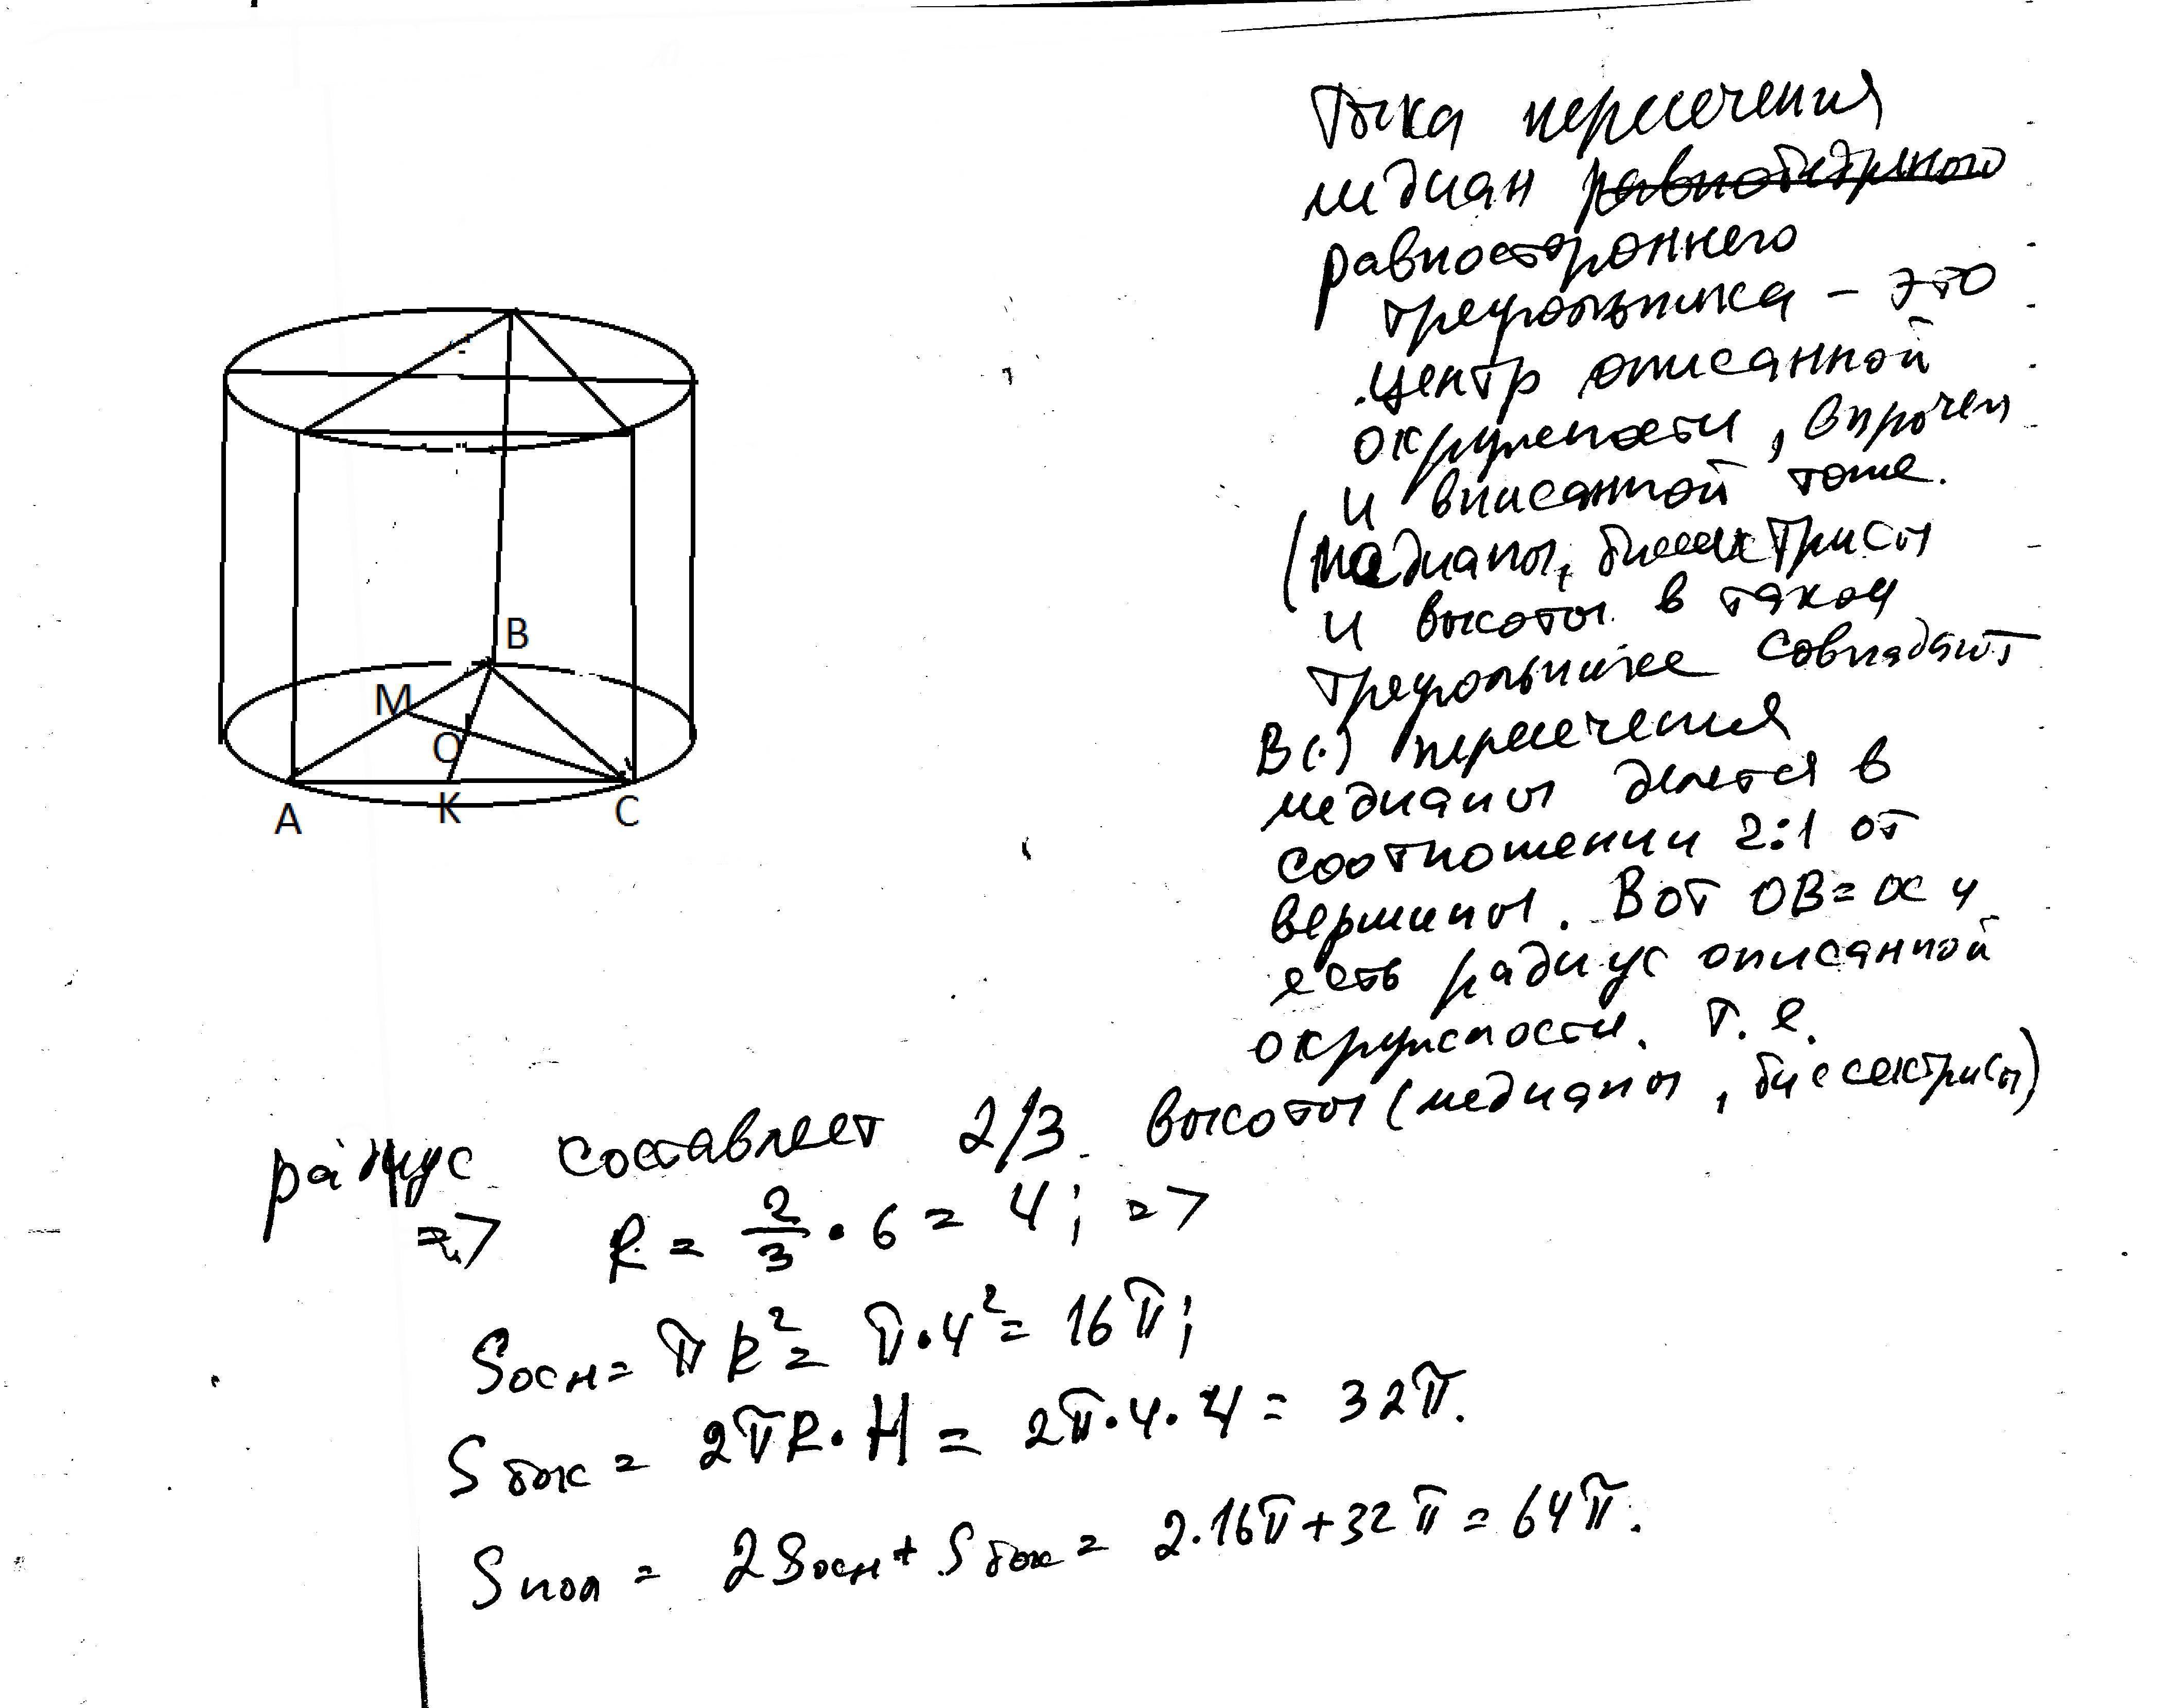 Точка пересечения
медиан равнобедренного
равностороннего
треугольника – это
центр описанной
окружности, впрочем
и вписанной тоже.
(медианы, биссектрисы
и высоты в таком
треугольнике совпадают
В (·) пересечения
медианы делятся в
соотношении 2:1 от
вершины. Вот OB = OC и
есть радиус описанной
окружности. Т. е.
радиус составляет 2/3 высоты (медианы, биссектрисы)
=> R = 2/3 · 6 = 4; =>
Sосн = πR² = π·4² = 16π;
Sбок = 2πR·H = 2π·4·4 = 32π.
Sпол = 2Sосн + Sбок = 2·16π+32π = 64π.
B
M
O
A
K
C